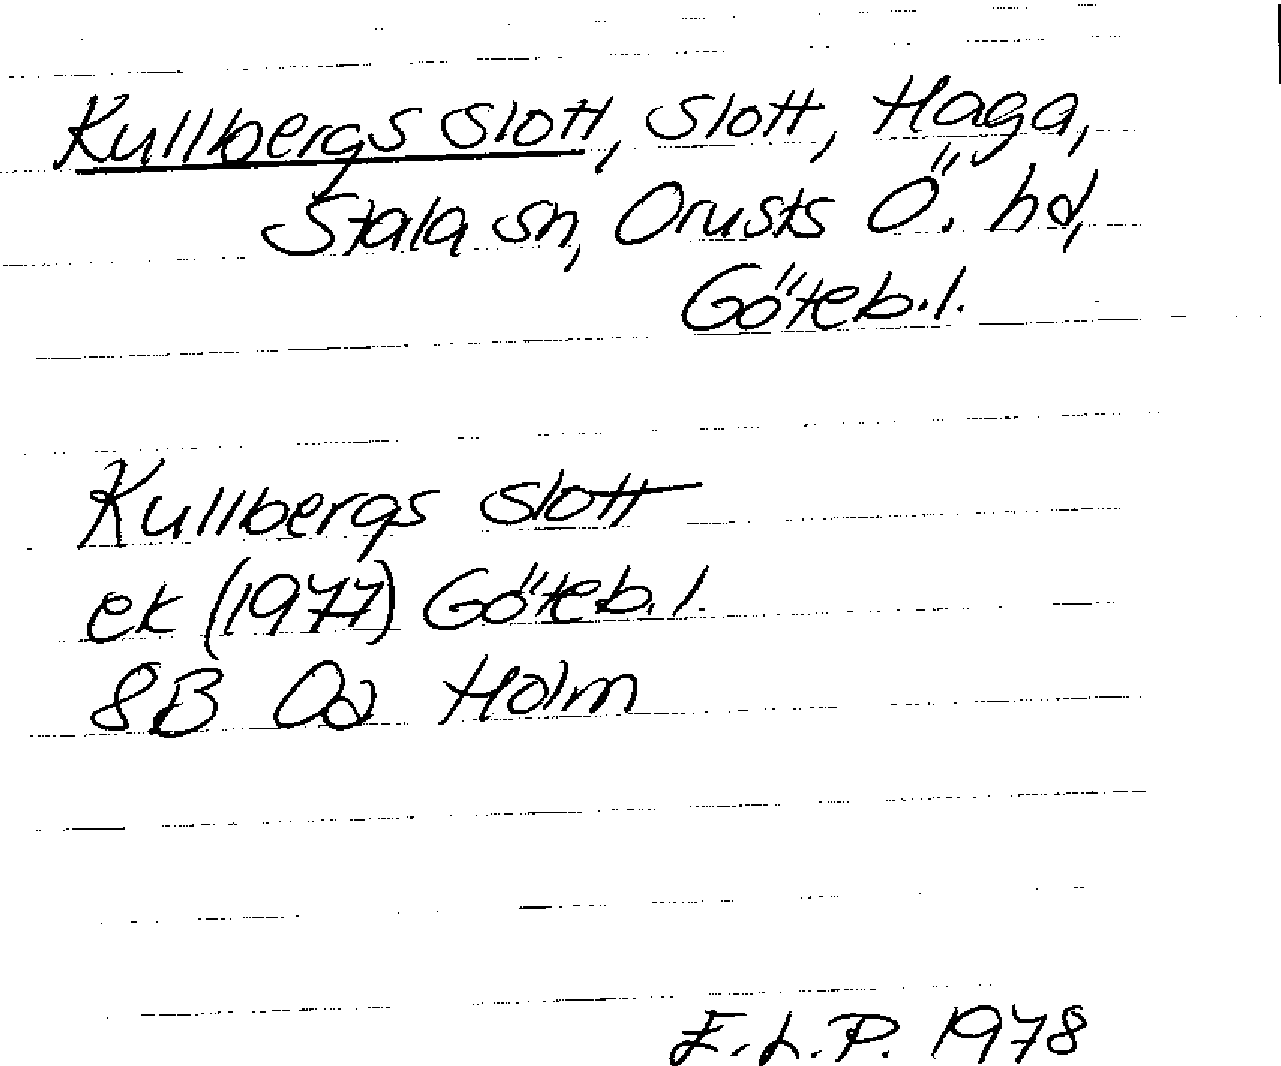 Kullbergs slott, slott, Haga,
Stala sn, Orusts Ö. hd,
Göteb.l.
Kullbergs slott
ek (1977) Göteb.l.
8B 0a Holm
E.L.P. 1978